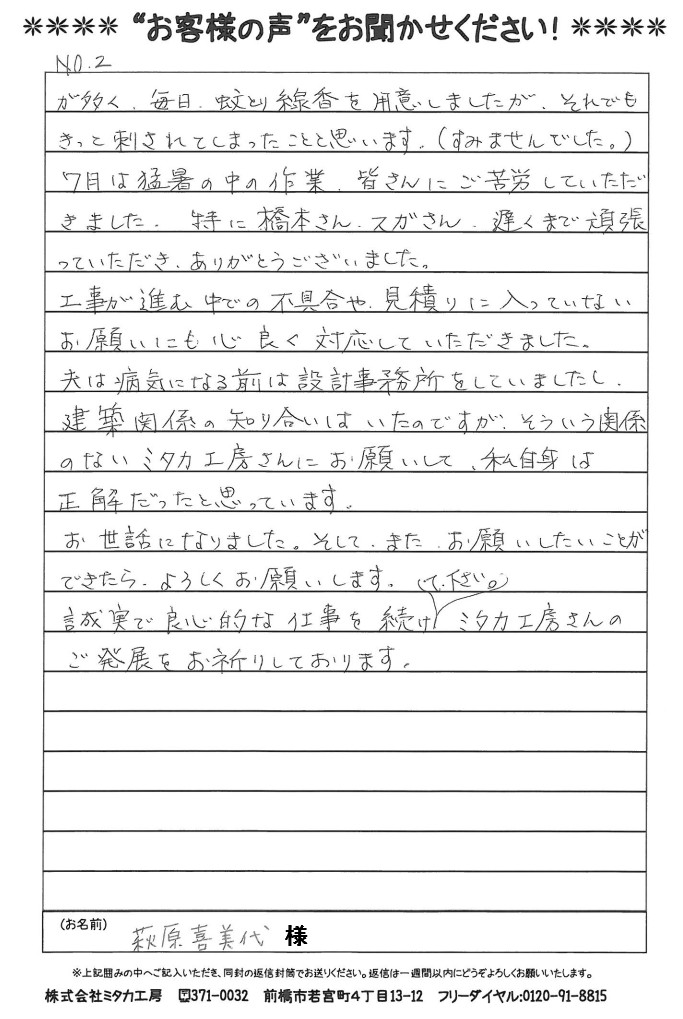 ＊＊＊＊ “お客様の声”をお聞かせください！ ＊＊＊＊
NO.2
が多く、毎日、蚊とり線香を用意しましたが、それでも
きっと刺されてしまったことと思います。（すみませんでした。）
7月は猛暑の中の作業、皆さんにご苦労していただ
きました。特に橋本さん、スガさん、遅くまで頑張
っていただき、ありがとうございました。
工事が進む中での不具合や、見積りに入っていない
お願いにも心良く対応していただきました。
夫は病気になる前は設計事務所をしていましたし、
建築関係の知り合いはいたのですが、そういう関係
のないミタカ工房さんにお願いして、私自身は
正解だったと思っています。
お世話になりました。そして、また、お願いしたいことが
できたら、よろしくお願いします。
誠実で良心的な仕事を続け（て下さい。）ミタカ工房さんの
ご発展をお祈りしております。
(お名前) 萩原喜美代 様
※上記囲みの中へご記入いただき、同封の返信封筒でお送りください。返信は一週間以内にどうぞよろしくお願いいたします。
株式会社ミタカ工房 〒371-0032 前橋市若宮町4丁目13-12 フリーダイヤル:0120-91-8815